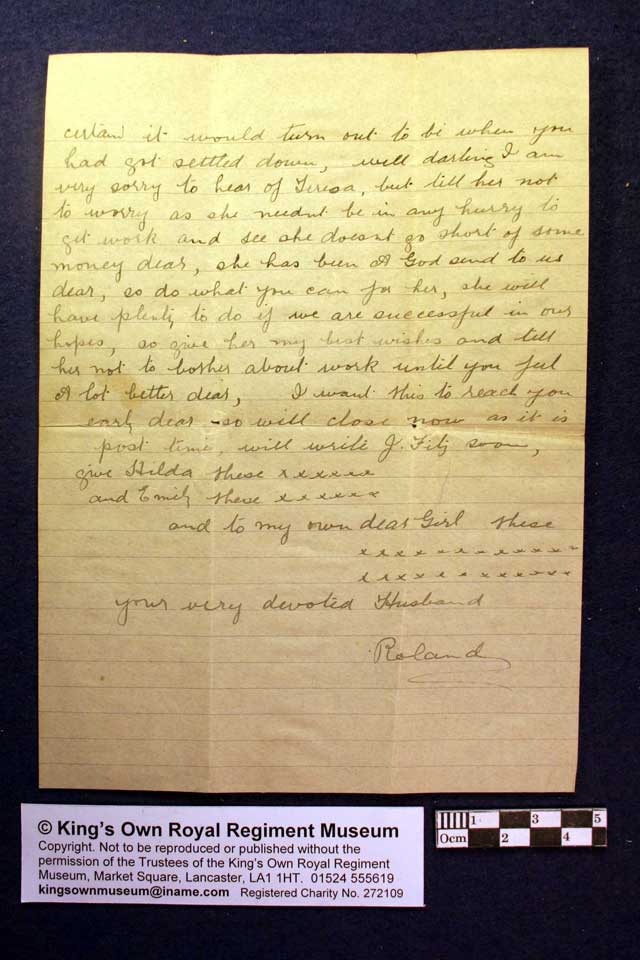 certain it would turn out to be when you
had got settled down, well darling I am
very sorry to hear of Teresa, but tell her not
to worry as she neednt be in any hurry to
get work and see she doesnt go short of some
money dear, she has been A God send to us
dear, so do what you can for her, she will
have plenty to do if we are successful in our
hopes, so give her my best wishes and tell
her not to bother about work until you feel
A lot better dear, I want this to reach you
early dear so will close now as it is
post time, will write J. Fitz soon,
give Hilda these xxxxxx
and Emily these xxxxxx
and to my own dear Girl these
xxxxxxxxxxxxx
xxxxxxxxxxxx
your very devoted Husband
Roland
© King's Own Royal Regiment Museum
Copyright. Not to be reproduced or published without the
permission of the Trustees of the King's Own Royal Regiment
Museum, Market Square, Lancaster, LA1 1HT. 01524 555619
kingsownmuseum@iname.com Registered Charity No. 272109
1 3 5
0cm 2 4